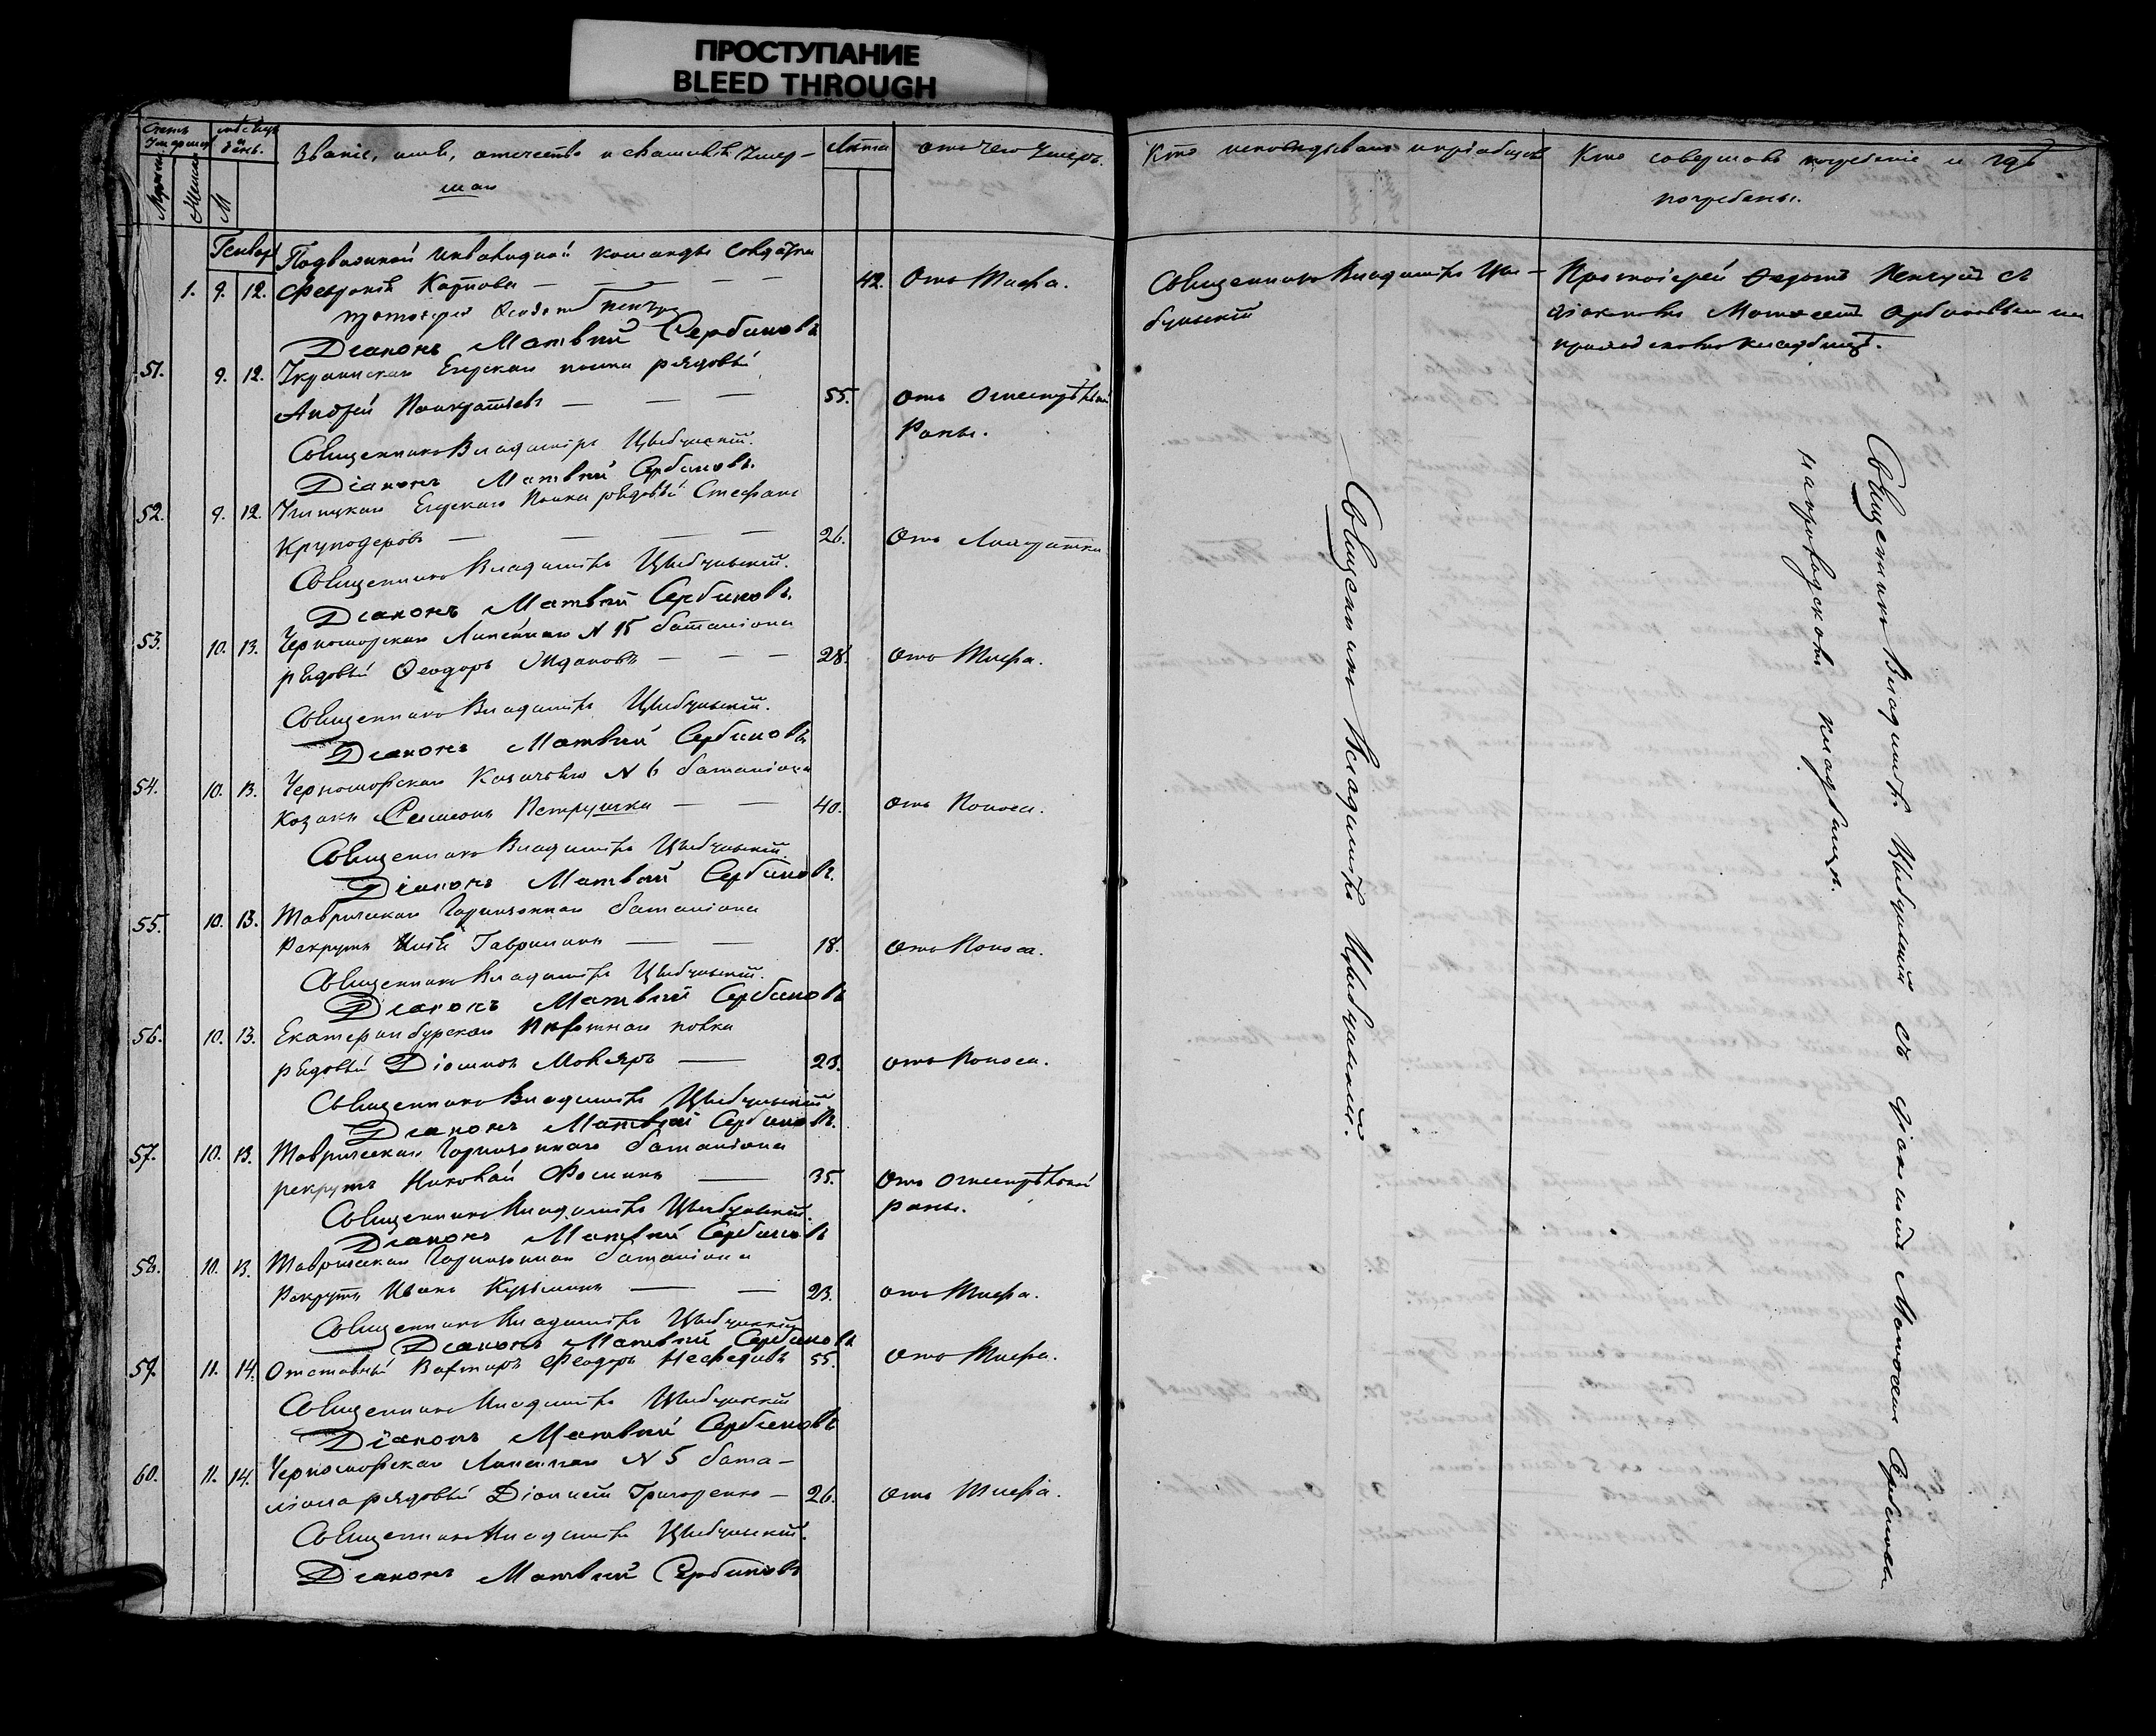 ПРОСТУПАНИЕ
BLEED THROUGH
Счетъ умершихъ
Мужеск.
Женск.
мѣсяцъ и день.
М
Званіе, имя, отечество и фамилія умер-
шаго
Лѣта
отъ чего умеръ.
Кто исповѣдывалъ и пріобщалъ
Кто совершалъ погребеніе и гдѣ
погребены.
Генваря
Подвижной инвалидной команды солдатка
1. 9. 12. Февронія Карпова — — — 42. Отъ Тифа.
Протоіерей
Діаконъ Матвѣй Сербиновъ
Священникъ Владиміръ Цы-
бульскій
Протоіерей Ѳедотъ съ
діакономъ Матѳеемъ Сербиновымъ на
приходскомъ кладбищѣ.
51. 9. 12. Украинскаго Егерскаго полка рядовый
Андрей Панкратьевъ — — — 55. Отъ Огнестрѣльной
раны.
Священникъ Владиміръ Цыбульскій.
Діаконъ Матвѣй Сербиновъ.
52. 9. 12. Углицкаго Егерскаго полка рядовый Стефанъ
Круподеровъ — — — — 26. Отъ Лихорадки
Священникъ Владиміръ Цыбульскій.
Діаконъ Матвѣй Сербиновъ.
53. 10. 13. Черноморскаго Линейнаго N 15 баталіона
рядовый Ѳеодоръ Ждановъ — — — 28. Отъ Тифа.
Священникъ Владиміръ Цыбульскій.
Діаконъ Матвѣй Сербиновъ
54. 10. 13. Черноморскаго Казачьяго N 6 баталіона
Козакъ Симеонъ Петрушка — — 40. отъ Поноса.
Священникъ Владиміръ Цыбульскій
Діаконъ Матвѣй Сербиновъ.
55. 10. 13. Таврическаго Гарнизоннаго баталіона
Рекрутъ Гаврилинъ — — 18. отъ Поноса.
Священникъ Владиміръ Цыбульскій.
Діаконъ Матвѣй Сербиновъ
56. 10. 13. Екатеринбургскаго Пѣхотнаго полка
рядовый — 23. отъ Поноса.
Священникъ Владиміръ Цыбульскій
Діаконъ Матвѣй Сербиновъ.
57. 10. 13. Таврическаго Гарнизоннаго баталіона
рекрутъ Николай Фоминъ — 35. Отъ Огнестрѣльной
раны.
Священникъ Владиміръ Цыбульскій.
Діаконъ Матвѣй Сербиновъ
58. 10. 13. Таврическаго Гарнизоннаго баталіона
Рекрутъ Иванъ Кузьминъ — — 23. отъ Тифа.
Священникъ Владиміръ Цыбульскій
Діаконъ Матвѣй Сербиновъ
59. 11. 14. Отставный Вахтиръ Ѳеодоръ Нефедовъ 55. Отъ Тифа.
Священникъ Владиміръ Цыбульскій
Діаконъ Матвѣй Сербиновъ
60. 11. 14. Черноморскаго Линейнаго N 5 бата-
ліона рядовый Діонисій Григоренко — 26. отъ Тифа.
Священникъ Владиміръ Цыбульскій.
Діаконъ Матвѣй Сербиновъ
Священникъ Владиміръ Цыбульскій.
Священникъ Владиміръ Цыбульскій съ діакономъ Матѳеемъ Сербиновымъ
на приходскомъ кладбищѣ.